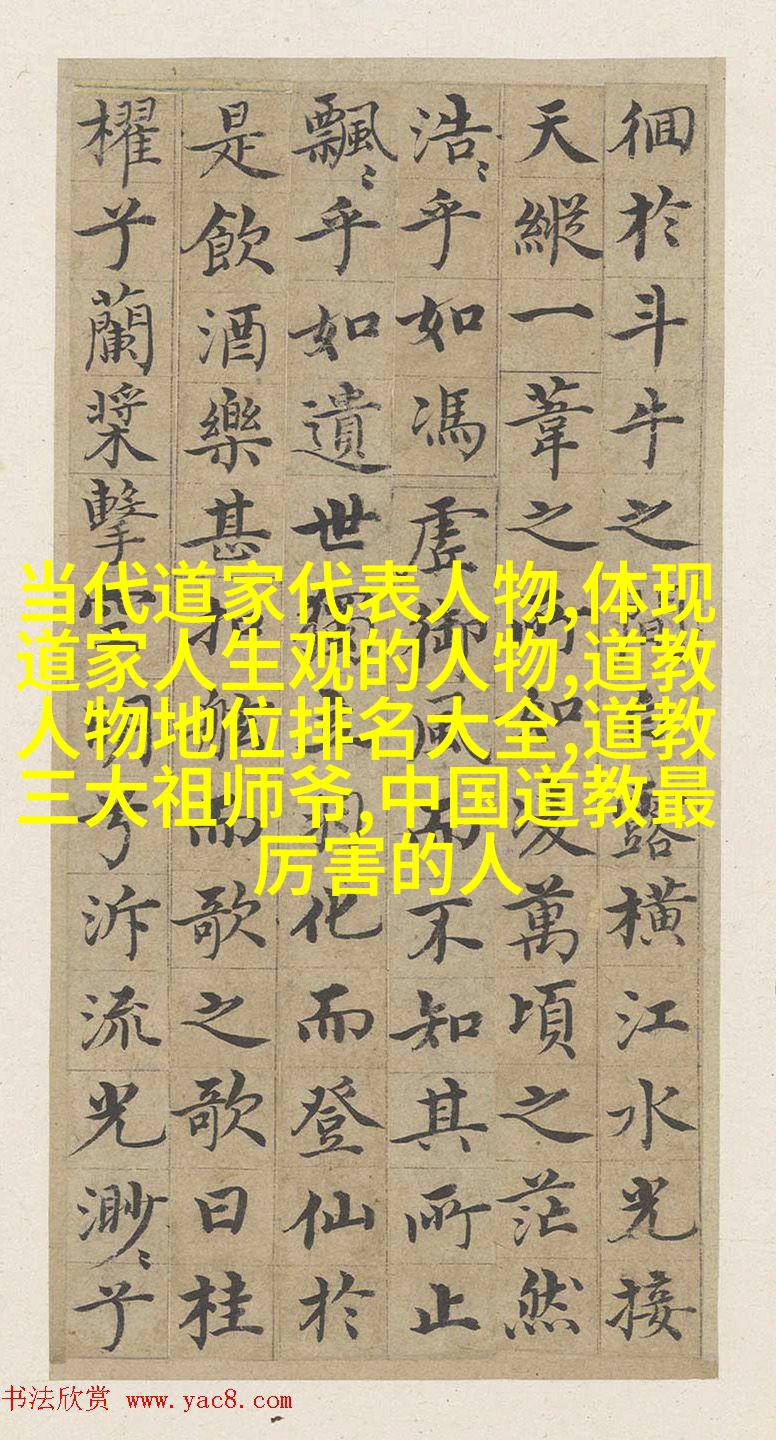 徊於斗牛之露橫江水光接
天縱一葦之所如凌萬頃之茫然
浩〻乎如馮虛御風而不知其所止
飄〻乎如遺世獨立羽化而登仙於
是飲酒樂甚扣舷而歌之歌曰桂
櫂兮蘭槳擊空明兮泝流光渺〻兮
当代道家代表人物,体现
道家人生观的人物,道教
人物地位排名大全,道教
三大祖师爷,中国道教最
厉害的人
书法欣赏 www.yac8.com